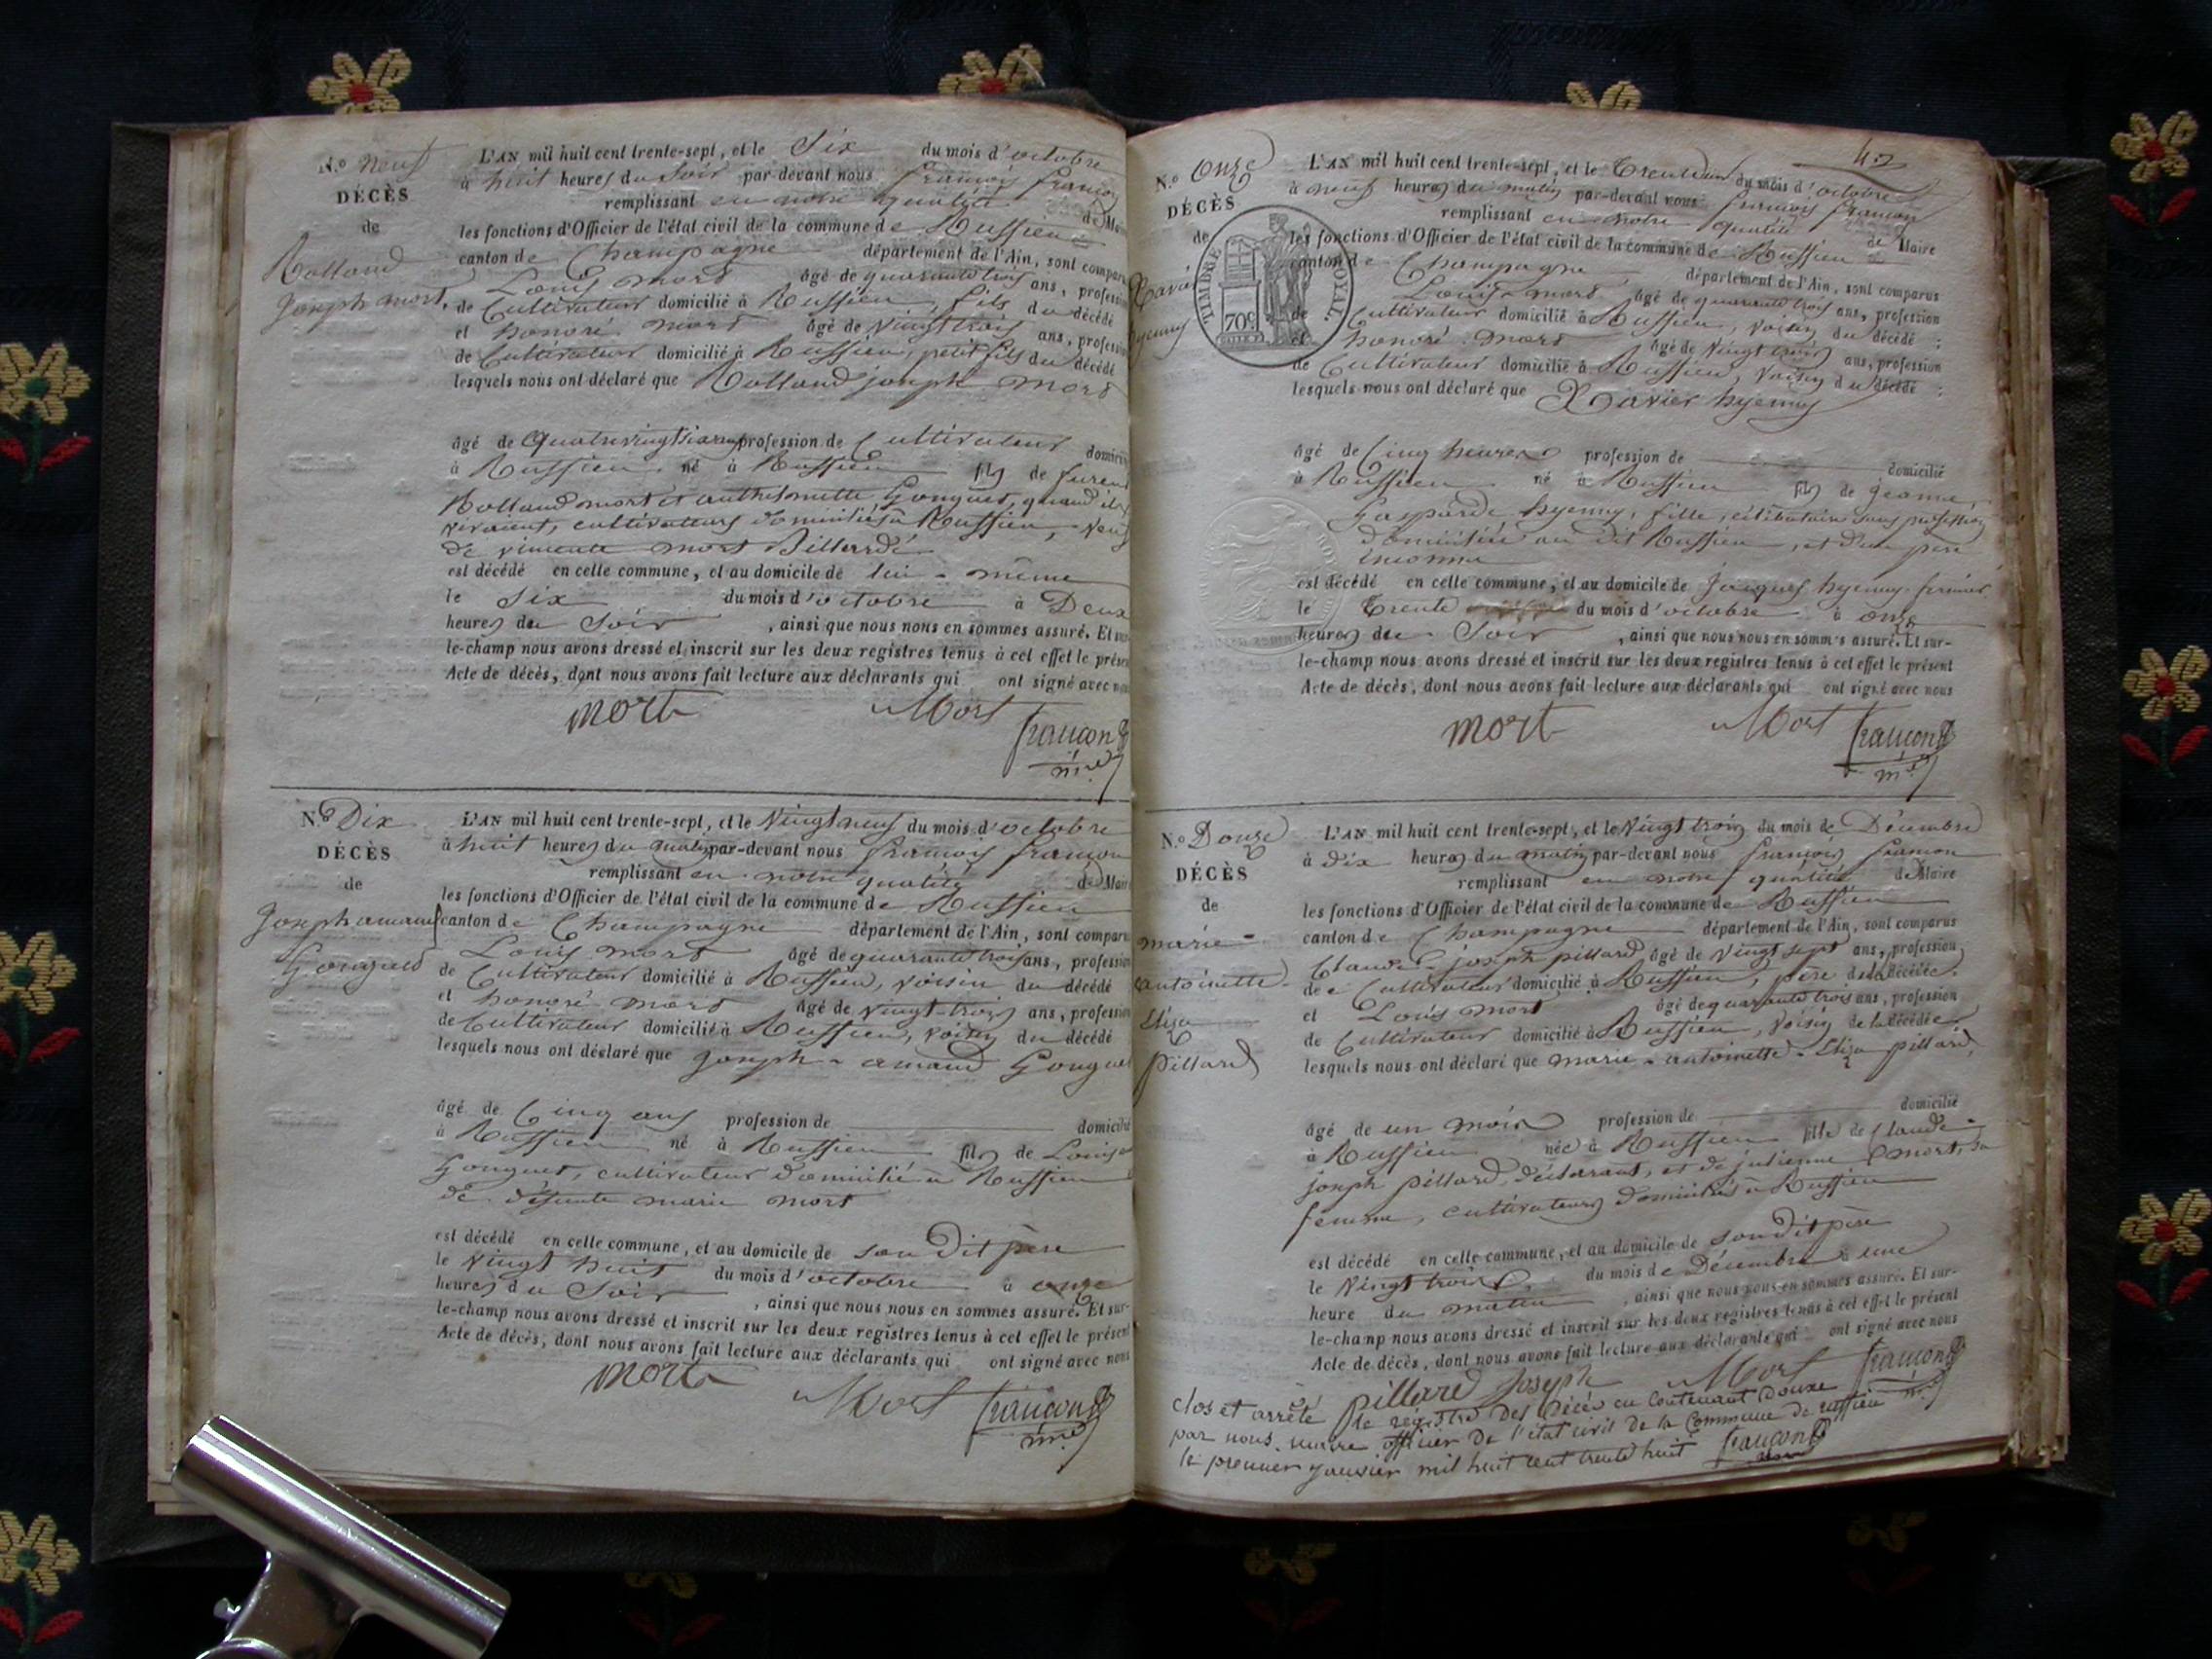 N.o neuf
DÉCÈS
de
Rolland
Joseph mort.
L'AN mil huit cent trente-sept, et le Six du mois d'octobre
à huit heures du Soir par-devant nous françois françon
remplissant en notre qualité de Mai
les fonctions d'Officier de l'état civil de la commune de Ruffieu
canton de Champagne département de l'Ain, sont compar
Louis mort âgé de quarante trois ans, profession
de Cultivateur domicilié à Ruffieu, fils du décédé
et honoré mort âgé de vingt trois ans, profession
de Cultivateur domicilié à Ruffieu, petit fils du décédé
lesquels nous ont déclaré que Rolland joseph mort
âgé de quatre vingt profession de Cultivateur domicili
à Ruffieu né à Ruffieu fils de
Rolland mort et anthelmette Gonguet, quand ils
vivaient, cultivateurs domiciliés à Ruffieu, veuf
de vincente mort Billardé
est décédé en celle commune, et au domicile de lui-même
le Six du mois d'octobre à Deux
heures du Soir, ainsi que nous nous en sommes assuré. Et sur
le-champ nous avons dressé et inscrit sur les deux registres tenus à cet effet le présen
Acte de décès, dont nous avons fait lecture aux déclarants qui ont signé avec nous
mort Mort françon
mre
N.o Dix
DÉCÈS
de
Joseph amand
Gonguet
L'AN mil huit cent trente-sept, et le Vingt neuf du mois d'octobre
à huit heures du matin par-devant nous françois françon
remplissant en notre qualité de Mair
les fonctions d'Officier de l'état civil de la commune de Ruffieu
canton de Champagne département de l'Ain, sont compar
Louis mort âgé de quarante trois ans, profession
de Cultivateur domicilié à Ruffieu, voisin du décédé
et honoré mort âgé de vingt-trois ans, profession
de Cultivateur domicilié à Ruffieu, voisin du décédé
lesquels nous ont déclaré que joseph-amand Gonguet
âgé de Cinq ans profession de domicilié
à Ruffieu né à Ruffieu fils de Louis
Gonguet, cultivateur domicilié à Ruffieu
de défunte marie mort
est décédé en celle commune, et au domicile de son dit père
le vingt huit du mois d'octobre à onze
heures du Soir, ainsi que nous nous en sommes assuré. Et sur-
le-champ nous avons dressé et inscrit sur les deux registres tenus à cet effet le présent
Acte de décès, dont nous avons fait lecture aux déclarants qui ont signé avec nous
mort Mort françon
mre
42
N.o Onze
DÉCÈS
de
Xavier
hyenny
TIMBRE ROYAL.
70c
L'AN mil huit cent trente-sept, et le Trente un du mois d'octobre
à neuf heures du matin par-devant nous françois françon
remplissant en notre qualité de Maire
les fonctions d'Officier de l'état civil de la commune de Ruffieu
canton de Champagne département de l'Ain, sont comparus
Louis mort âgé de quarante trois ans, profession
de Cultivateur domicilié à Ruffieu, voisin du décédé ;
et honoré mort âgé de vingt trois ans, profession
de Cultivateur domicilié à Ruffieu, voisin du décédé ;
lesquels nous ont déclaré que Xavier hyenny
âgé de Cinq heures profession de domicilié
à Ruffieu né à Ruffieu fils de Jeanne,
Gasparde hyenny, fille, célibataire sans profession
domiciliée au dit Ruffieu, et d'un père
inconnu
est décédé en celle commune, et au domicile de Jacques hyenny fermier
le trente du mois d'octobre à onze
heures du Soir, ainsi que nous nous en sommes assuré. Et sur-
le-champ nous avons dressé et inscrit sur les deux registres tenus à cet effet le présent
Acte de décès, dont nous avons fait lecture aux déclarants qui ont signé avec nous
mort Mort françon
mre
N.o Douze
DÉCÈS
de
marie-
antoinette-
Eliza
pillard
L'AN mil huit cent trente-sept, et le Vingt trois du mois de Décembre
à Dix heures du matin par-devant nous françois françon
remplissant en notre qualité de Maire
les fonctions d'Officier de l'état civil de la commune de Ruffieu
canton de Champagne département de l'Ain, sont comparus
Claude-joseph pillard âgé de vingt sept ans, profession
de Cultivateur domicilié à Ruffieu, père de la décédée
et Louis mort âgé de quarante trois ans, profession
de Cultivateur domicilié à Ruffieu, voisin de la décédée
lesquels nous ont déclaré que marie-antoinette-Eliza pillard,
âgé de un mois profession de domicilié
à Ruffieu née à Ruffieu fille de Claude-
joseph pillard, déclarant, et de julienne mort, sa
femme, cultivateurs domiciliés à Ruffieu
est décédé en celle commune, et au domicile de son dit père
le Vingt trois du mois de Décembre à une
heure du matin, ainsi que nous nous en sommes assuré. Et sur-
le-champ nous avons dressé et inscrit sur les deux registres tenus à cet effet le présent
Acte de décès, dont nous avons fait lecture aux déclarants qui ont signé avec nous
pillard Joseph Mort françon
mre
Clos et arrêté le régistre des Décès en contenant Douze
par nous maire officier de l'état civil de la Commune de ruffieu
le premier janvier mil huit cent trente huit françon